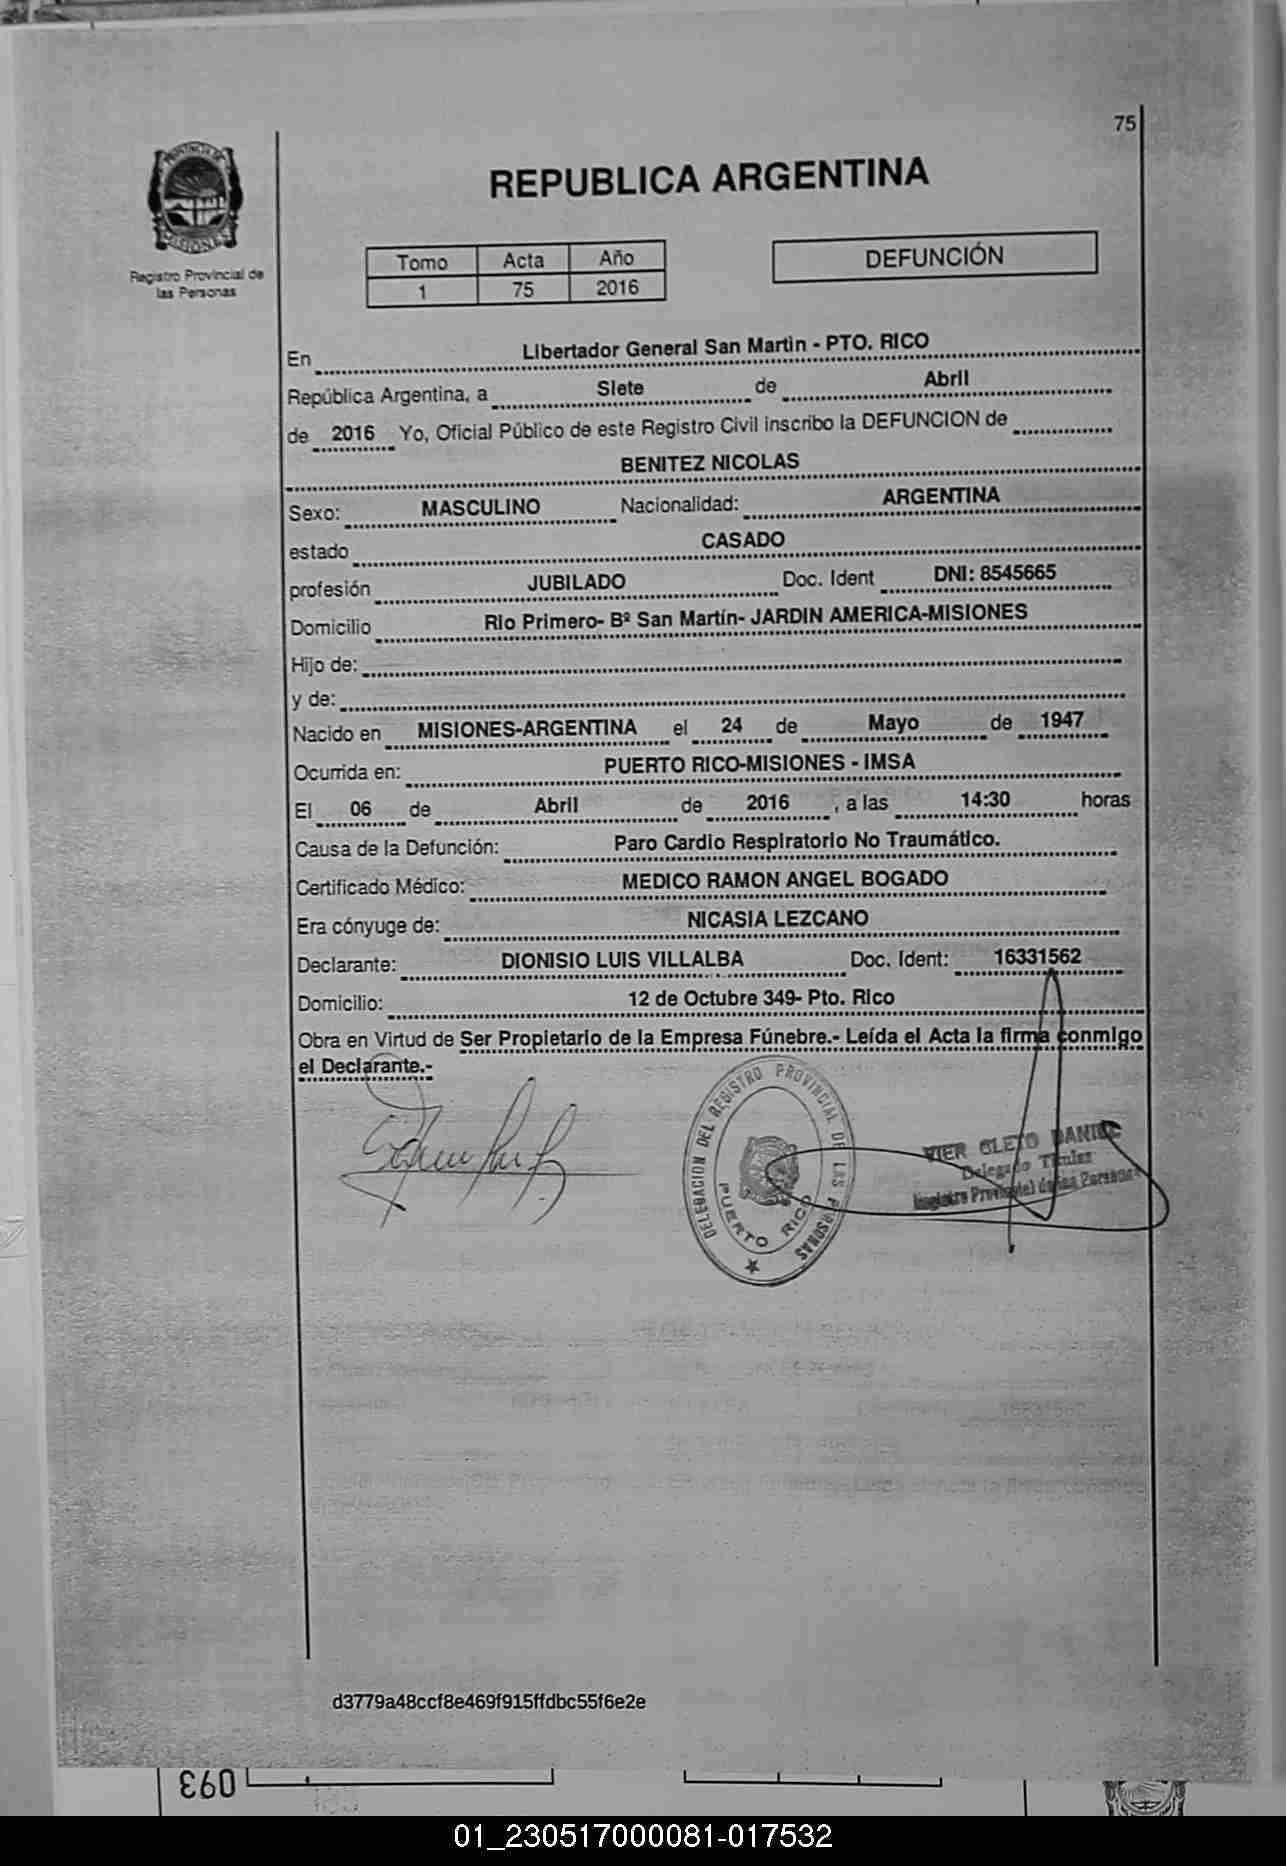 75
PROVINCIA DE
MISIONES
Registro Provincial de
las Personas
REPUBLICA ARGENTINA
Tomo Acta Año
1 75 2016
DEFUNCIÓN
En Libertador General San Martin - PTO. RICO
República Argentina, a Siete de Abril
de 2016 Yo, Oficial Público de este Registro Civil inscribo la DEFUNCION de
BENITEZ NICOLAS
Sexo: MASCULINO Nacionalidad: ARGENTINA
estado CASADO
profesión JUBILADO Doc. Ident DNI: 8545665
Domicilio Rio Primero- Bº San Martín- JARDIN AMERICA-MISIONES
Hijo de:
y de:
Nacido en MISIONES-ARGENTINA el 24 de Mayo de 1947
Ocurrida en: PUERTO RICO-MISIONES - IMSA
El 06 de Abril de 2016 , a las 14:30 horas
Causa de la Defunción: Paro Cardio Respiratorio No Traumático.
Certificado Médico: MEDICO RAMON ANGEL BOGADO
Era cónyuge de: NICASIA LEZCANO
Declarante: DIONISIO LUIS VILLALBA Doc. Ident: 16331562
Domicilio: 12 de Octubre 349- Pto. Rico
Obra en Virtud de Ser Propietario de la Empresa Fúnebre.- Leída el Acta la firma conmigo
el Declarante.-
DELEGACION DEL REGISTRO PROVINCIAL DE LAS PERSONAS
PUERTO RICO
VIER CLETO DANIEL
Delegado Titular
Registro Provincial de las Personas
d3779a48ccf8e469f915ffdbc55f6e2e
093
01_230517000081-017532